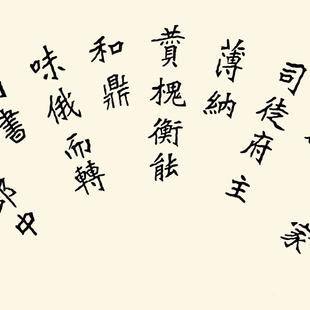 家
司徒府主
薄納
賛槐衡能
和鼎
味俄而轉
書郎中